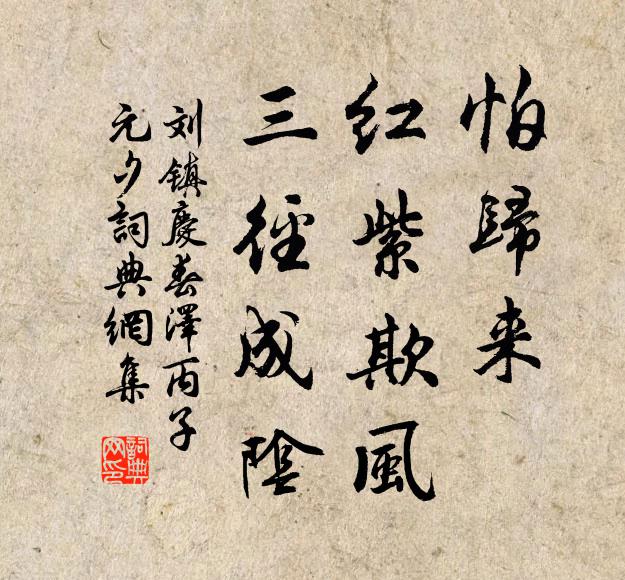 怕歸来
红紫欺風
三徑成陰
刘镇慶春澤丙子
元夕詞典網集
詞典
网印